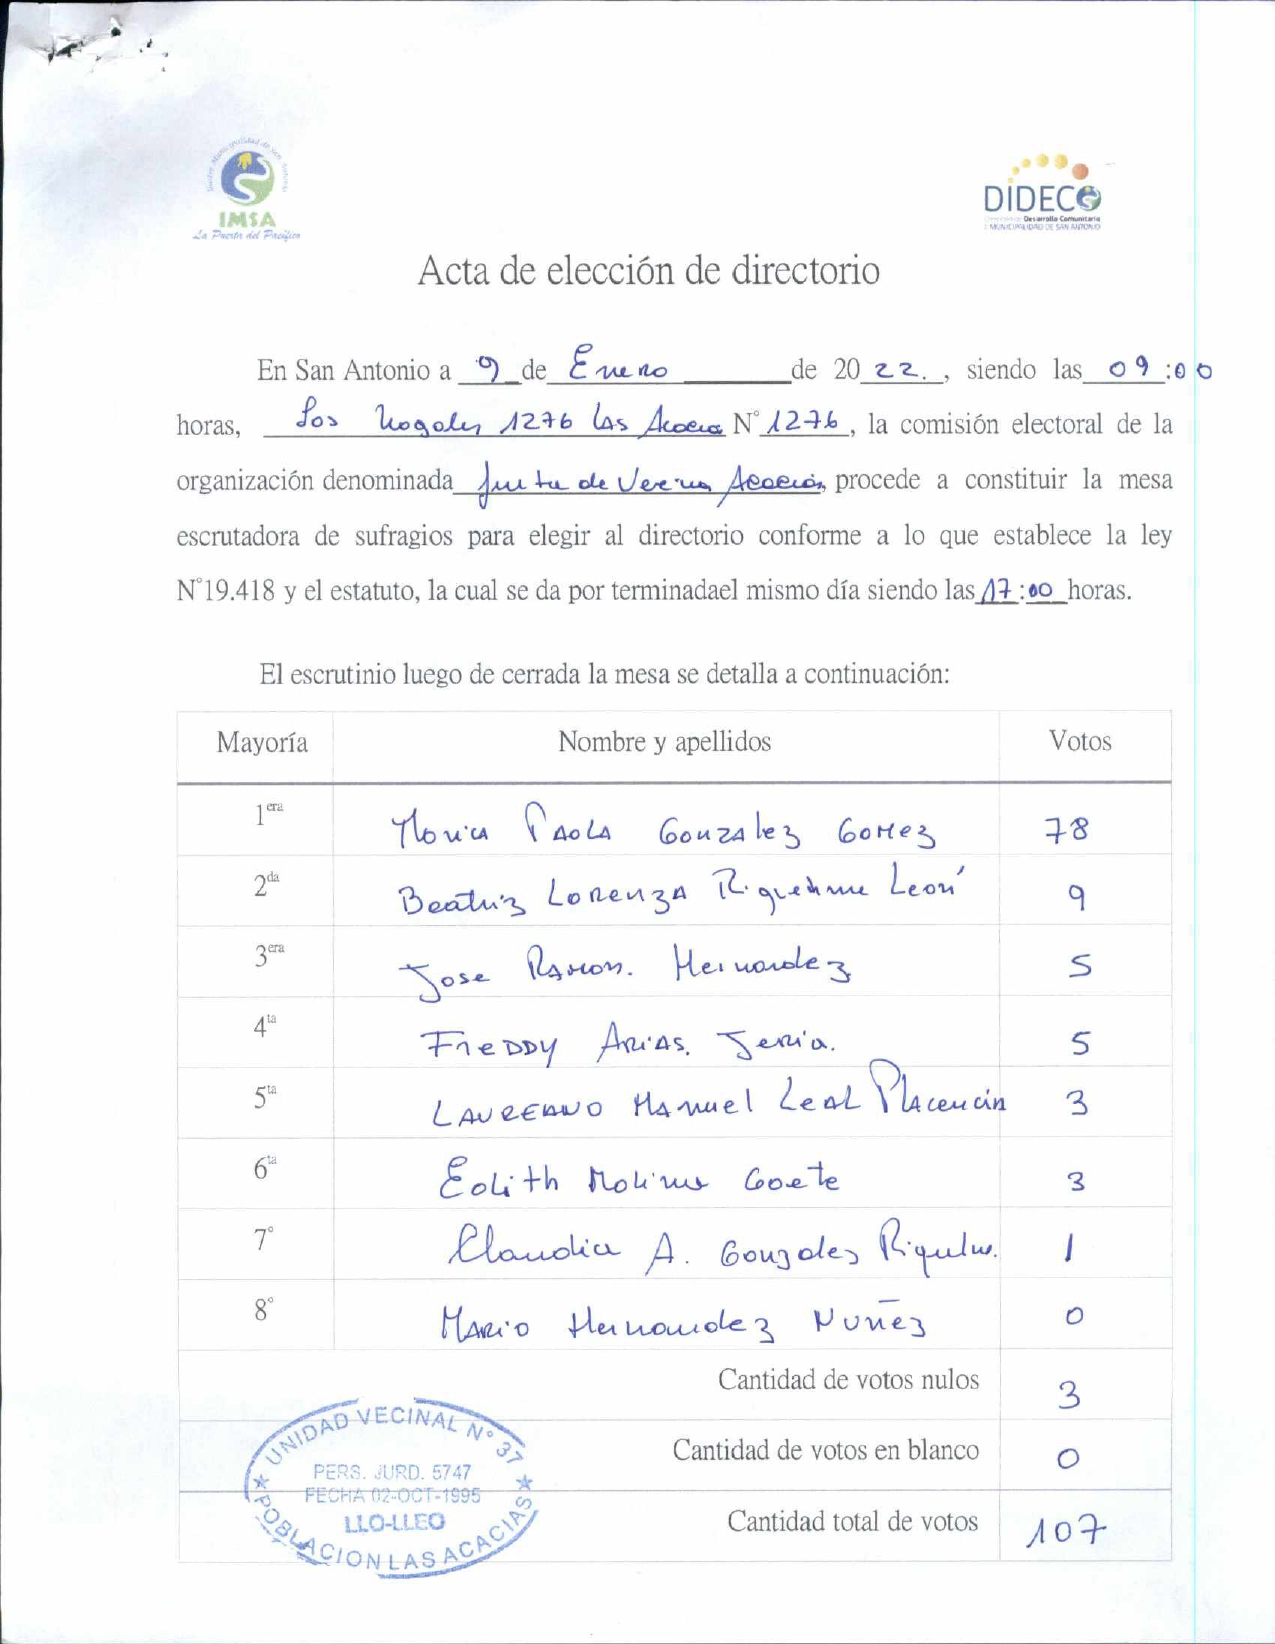 Ilustre Municipalidad de San Antonio
IMSA
La Puerta del Pacífico
DIDECO
Desarrollo Comunitario
I. MUNICIPALIDAD DE SAN ANTONIO
Acta de elección de directorio
En San Antonio a 9 de Enero de 2022. , siendo las 09:00
horas, Los Nogales 1276 Las Acacia N° 1276, la comisión electoral de la
organización denominada Junta de Vecinos Acacias, procede a constituir la mesa
escrutadora de sufragios para elegir al directorio conforme a lo que establece la ley
N°19.418 y el estatuto, la cual se da por terminadael mismo día siendo las 17:00 horas.
El escrutinio luego de cerrada la mesa se detalla a continuación:
Mayoría Nombre y apellidos Votos
1era Monica PAOLA GONZALEZ GOMEZ 78
2da Beatriz LORENZA Riquelme León 9
3era Jose Ramon. Hernandez 5
4ta FREDDY ARIAS. Jeria. 5
5ta LAUREANO Manuel Leal Placencia 3
6ta Edith Molina Goete 3
7° Claudia A. Gonzales Riquelme. 1
8° MARIO Hernandez Nuñez 0
Cantidad de votos nulos 3
Cantidad de votos en blanco 0
Cantidad total de votos 107
UNIDAD VECINAL N° 37
PERS. JURD. 5747
FECHA 02-OCT-1995
LLO-LLEO
POBLACION LAS ACACIAS